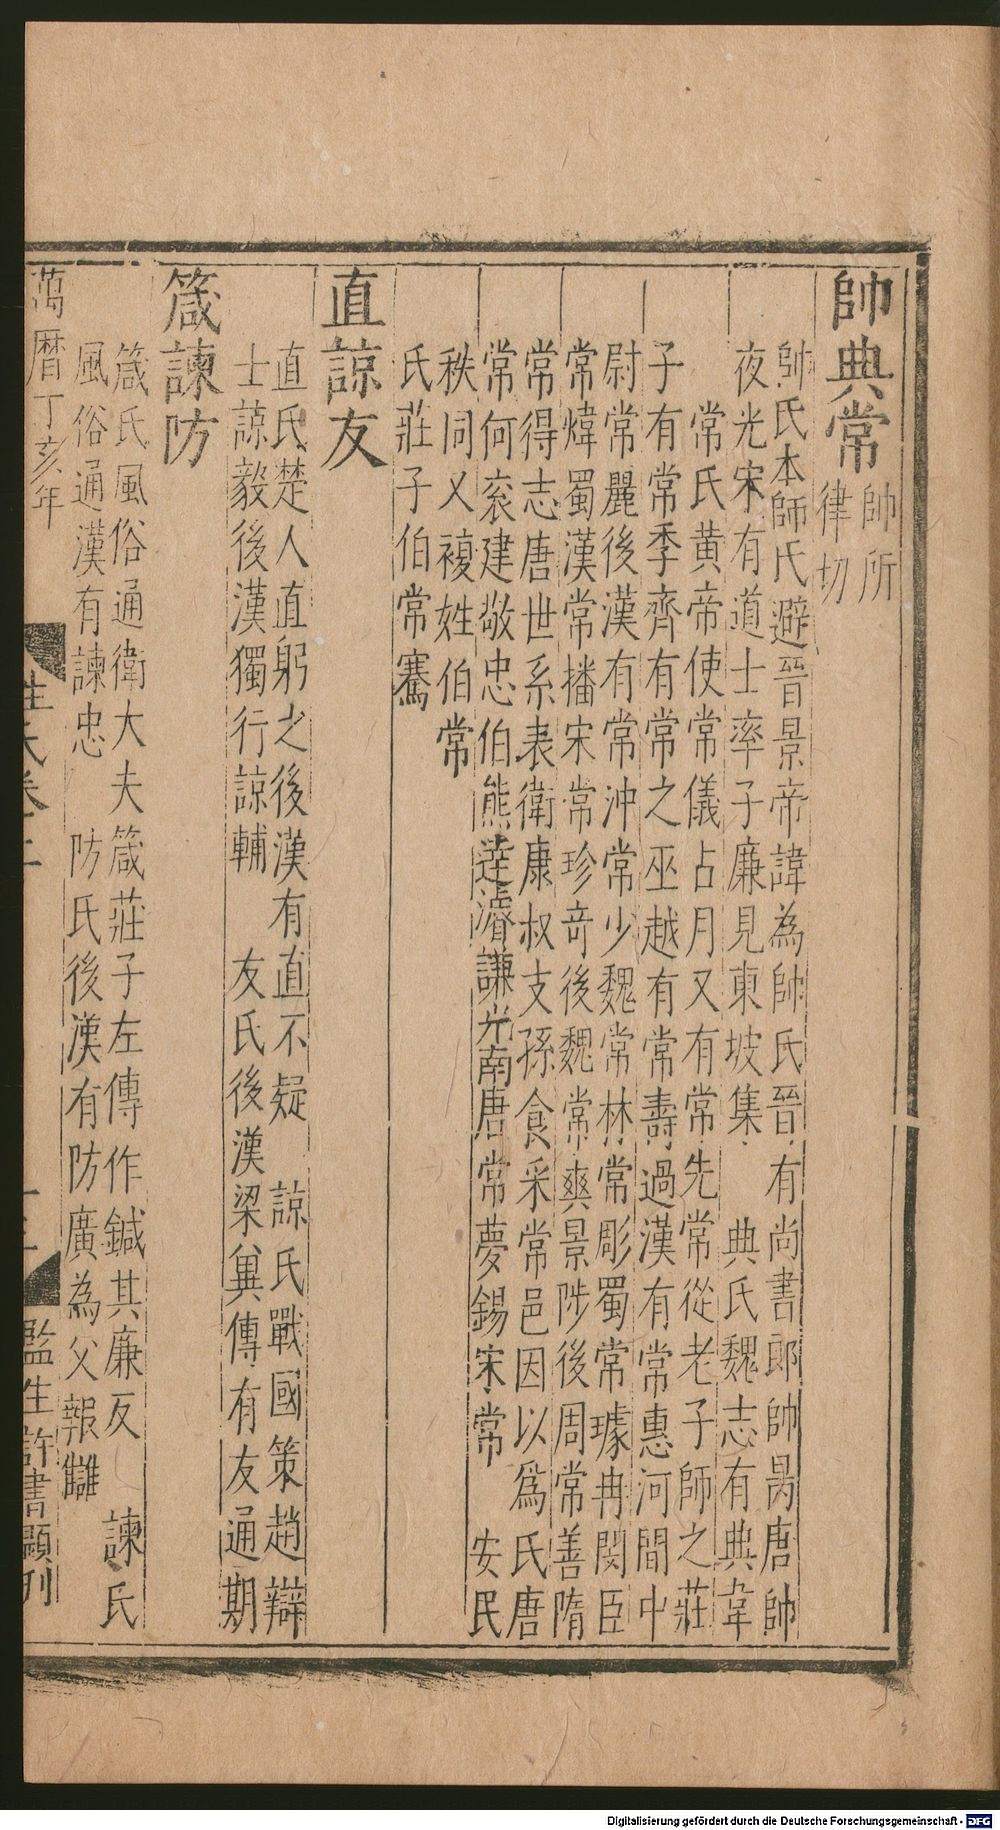 帥典常
帥所
律切
帥氏本師氏避晉景帝諱為帥氏晉有尚書郎帥昺唐帥
夜光宋有道士率子廉見東坡集 典氏魏志有典韋
常氏黃帝使常儀占月又有常先常從老子師之莊
子有常季齊有常之巫越有常壽過漢有常惠河間中
尉常麗後漢有常沖常少魏常林常彫蜀常璩冉閔臣
常煒蜀漢常播宋常珍奇後魏常爽景陟後周常善隋
常得志唐世系表衛康叔支孫食采常邑因以爲氏唐
常何衮建敬忠伯熊達濬謙光南唐常夢錫宋常 安民
秩同又複姓伯常
氏莊子伯常騫
直諒友
直氏楚人直躬之後漢有直不疑 諒氏戰國策趙辯
士諒毅後漢獨行諒輔 友氏後漢梁冀傳有友通期
箴諫防
箴氏風俗通衛大夫箴莊子左傳作鍼其廉反 諫氏
風俗通漢有諫忠 防氏後漢有防廣為父報讎
萬曆丁亥年 姓氏卷 監生許書顯刋
Digitalisierung gefördert durch die Deutsche Forschungsgemeinschaft - DFG